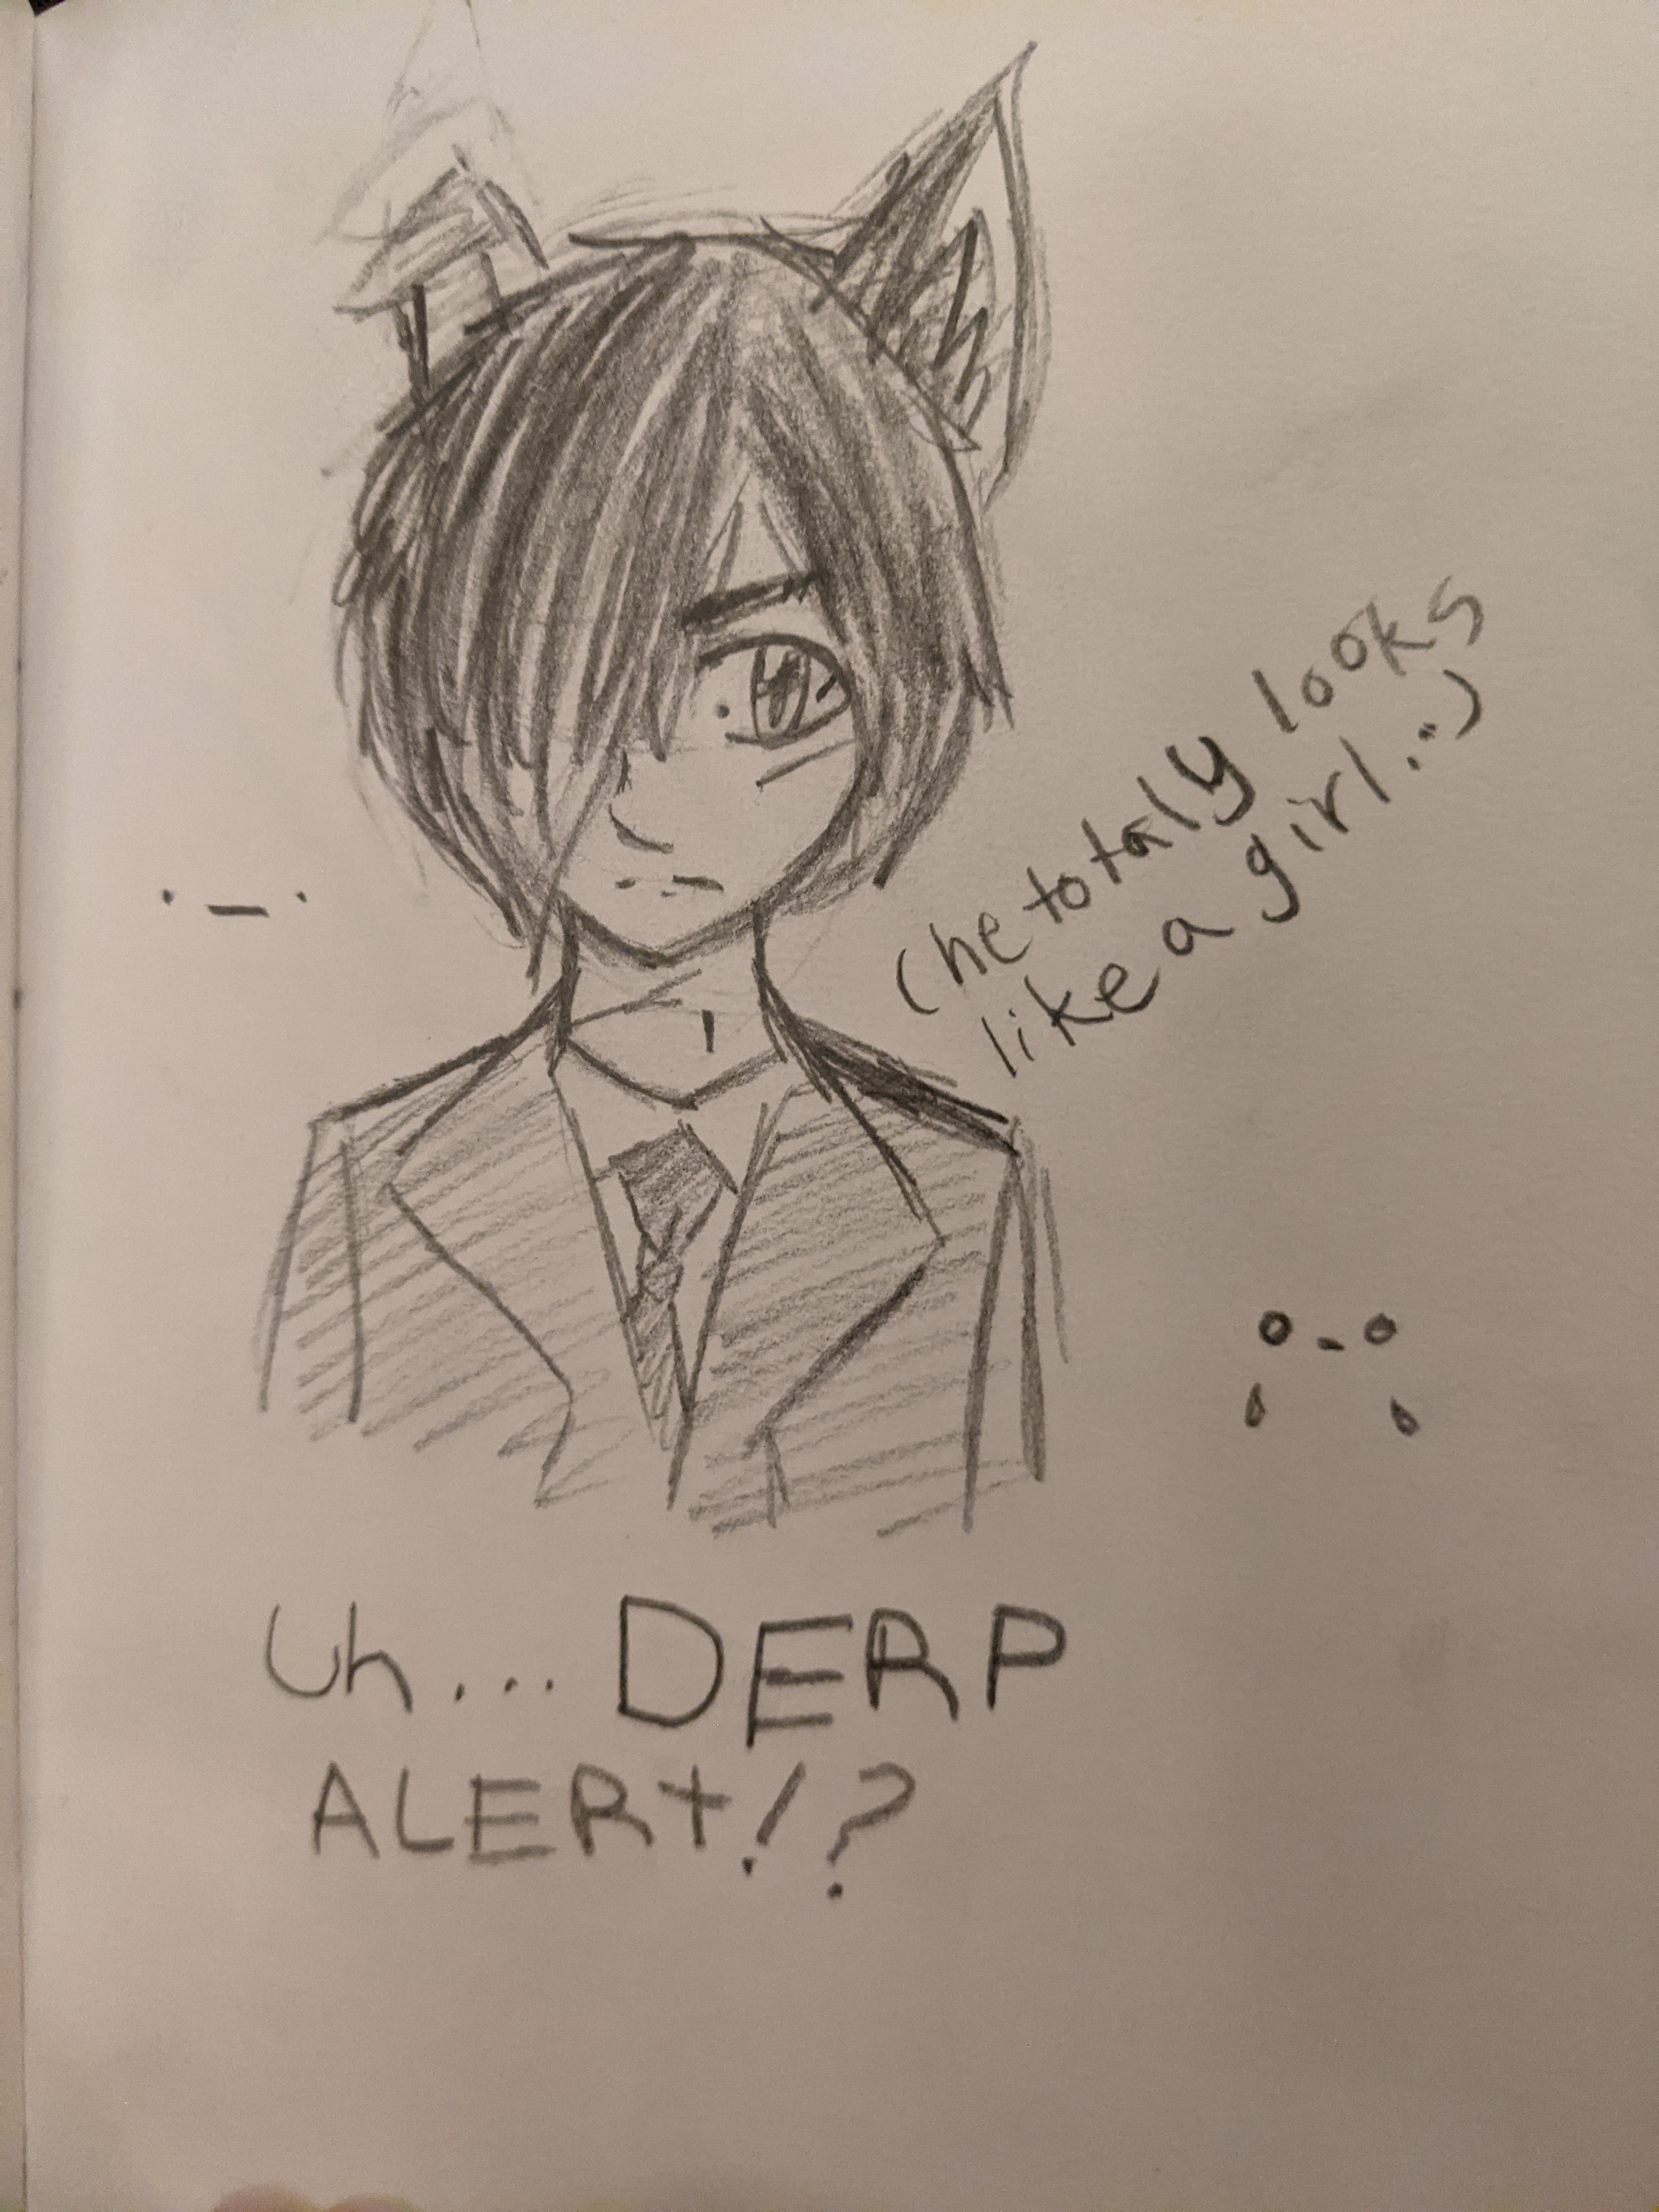 (he totaly looks
like a girl..)
._.
o-o
Uh... DERP
ALERT!?